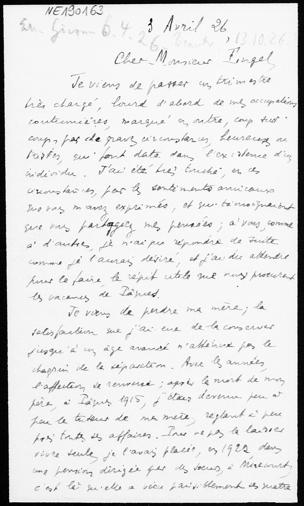 NE190163
3 Avril 26,
6.4.26, 13.10.26
Cher Monsieur
Je viens de passer un trimestre
très chargé, lourd d'abord de mes occupations
coutumières, marqué en outre, coup sur
coup, par de graves circonstances, heureuses ou
tristes, qui font date dans l'existence d'un
individu. J'ai été très touché, en ces
circonstances, par les sentiments amicaux
que vous m'avez exprimés, et qui témoignaient
que vous partagiez mes pensées ; à vous, comme
à d'autres, je n'ai pu répondre de suite
comme je l'aurais désiré, et j'ai dû attendre
pour le faire, le répit utile que nous procurent
les vacances de Pâques.
Je viens de perdre ma mère ; la
satisfaction que j'ai eue de la conserver
jusqu'à un âge avancé n'atténue pas le
chagrin de la séparation. Avec les années,
l'affection se renverse ; après la mort de mon
père, à Pâques 1915, j'étais devenu peu à
peu le tuteur de ma mère, réglant à peu
près toutes ses affaires. Pour ne pas la laisser
vivre seule, je l'avais placée, en 1922, dans
une pension dirigée par des soeurs, à Mirecourt ;
c'est là qu'elle a vécu paisiblement ses quatre